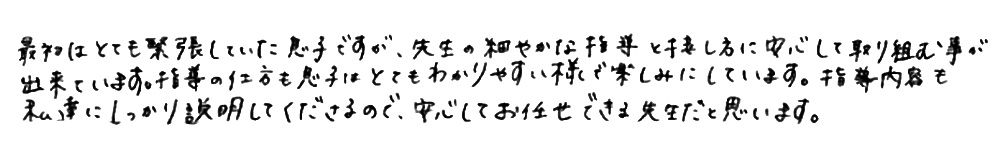 最初はとても緊張していた息子ですが、先生の細やかな指導と接し方に安心して取り組む事が
出来ています。指導の仕方も息子はとてもわかりやすい様で楽しみにしています。指導内容も
私達にしっかり説明してくださるので、安心してお任せできる先生だと思います。